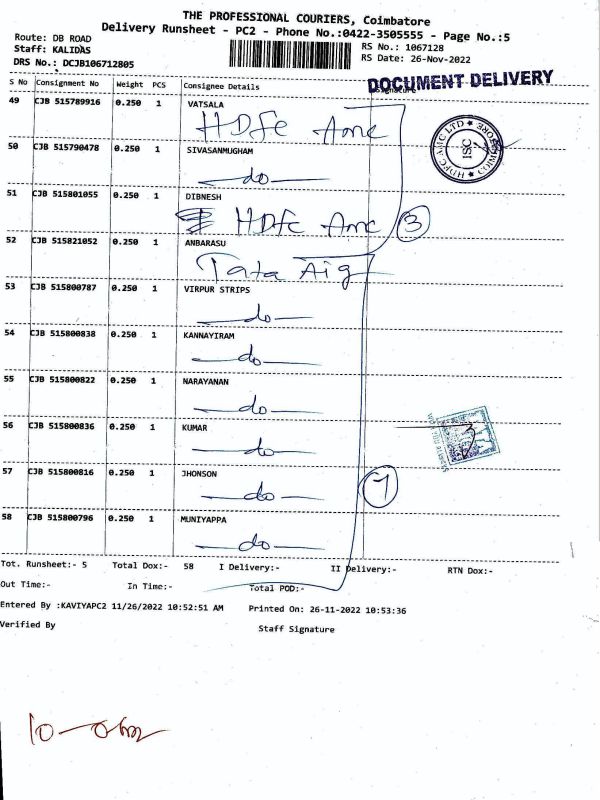 THE PROFESSIONAL COURIERS, Coimbatore
Delivery Runsheet - PC2 - Phone No.:0422-3505555 - Page No.:5
Route: DB ROAD
RS No.: 1067128
Staff: KALIDAS
RS Date: 26-Nov-2022
DRS No.: DCJB106712805
DOCUMENT DELIVERY
S No Consignment No Weight PCS Consignee Details Signature
49 CJB 515789916 0.250 1 VATSALA
HDFC Amc
HDFC AMC LTD ★ COIMBATORE ★
ISC
50 CJB 515790478 0.250 1 SIVASANMUGHAM
— do —
51 CJB 515801055 0.250 1 DIBNESH
HDFC Amc 3
52 CJB 515821052 0.250 1 ANBARASU
Tata Aig
53 CJB 515800787 0.250 1 VIRPUR STRIPS
— do —
54 CJB 515800838 0.250 1 KANNAYIRAM
— do —
55 CJB 515800822 0.250 1 NARAYANAN
— do —
56 CJB 515800836 0.250 1 KUMAR
— do —
57 CJB 515800816 0.250 1 JHONSON
— do — 7
58 CJB 515800796 0.250 1 MUNIYAPPA
— do —
Tot. Runsheet:- 5 Total Dox:- 58 I Delivery:- II Delivery:- RTN Dox:-
Out Time:- In Time:- Total POD:-
Entered By :KAVIYAPC2 11/26/2022 10:52:51 AM Printed On: 26-11-2022 10:53:36
Verified By Staff Signature
10 -